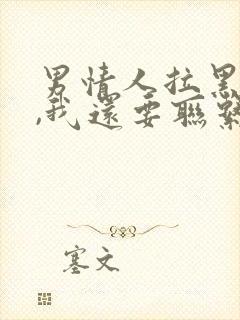 男情人拉黑
,我還要聯繫
塞文